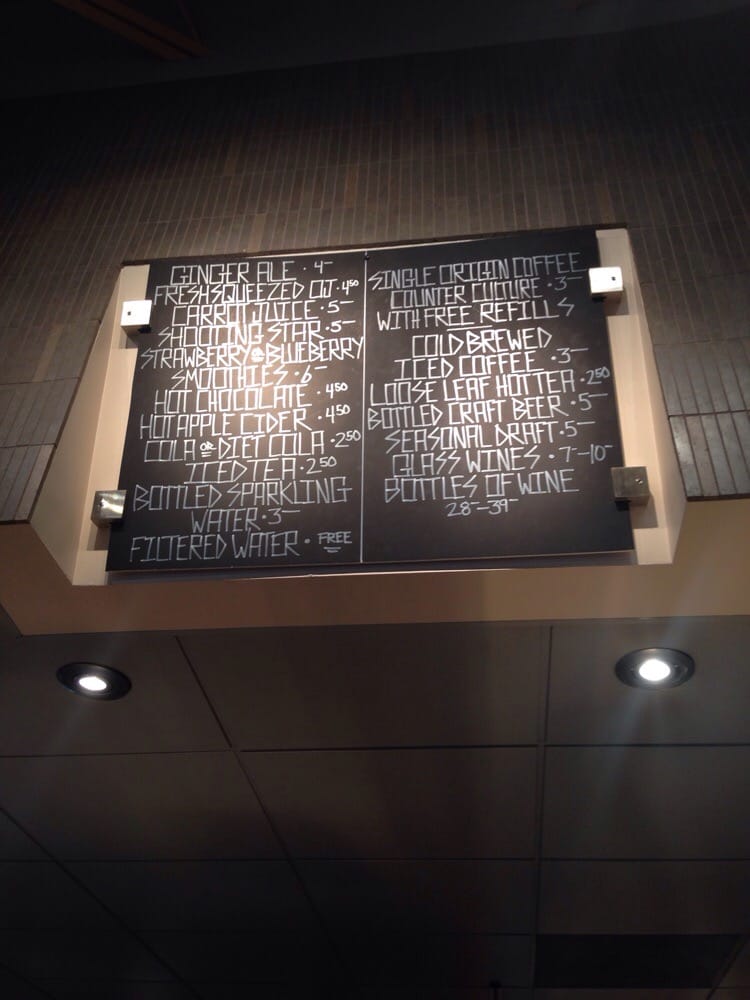 GINGER ALE · 4-
FRESH SQUEEZED OJ · 4.50
CARROT JUICE · 5-
SHOOTING STAR · 5-
STRAWBERRY OR BLUEBERRY
SMOOTHIES · 6-
HOT CHOCOLATE · 4.50
HOT APPLE CIDER · 4.50
COLA OR DIET COLA · 2.50
ICED TEA · 2.50
BOTTLED SPARKLING
WATER · 3-
FILTERED WATER · FREE
SINGLE ORIGIN COFFEE
COUNTER CULTURE · 3-
WITH FREE REFILLS
COLD BREWED
ICED COFFEE · 3-
LOOSE LEAF HOT TEA · 2.50
BOTTLED CRAFT BEER · 5-
SEASONAL DRAFT · 5-
GLASS WINES · 7-10-
BOTTLES OF WINE
28-39-